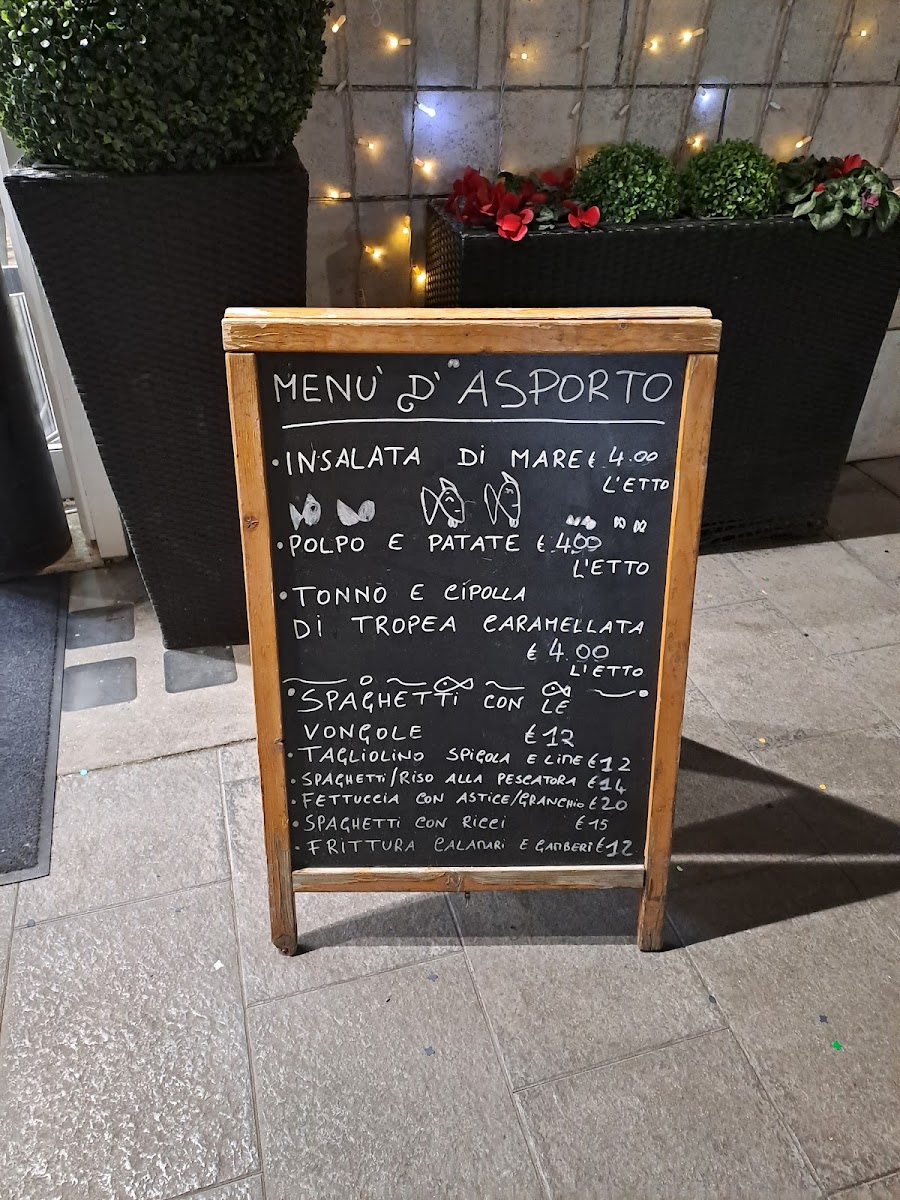 MENÙ D'ASPORTO
• INSALATA Di MARE € 4.00
L'ETTO
• POLPO E PATATE € 4.00
L'ETTO
• TONNO E CiPOLLA
Di TROPEA CARAMELLATA
€ 4.00
L'ETTO
• SPAGHETTi CON LE
VONGOLE €12
• TAGLIOLINO SPIGOLA E LIME €12
• SPAGHETTI/RISO ALLA PESCATORA €14
• FETTUCCIA CON ASTICE/GRANCHIO €20
• SPAGHETTi CON RICCI €15
• FRITTURA CALAMARI E GAMBERI €12